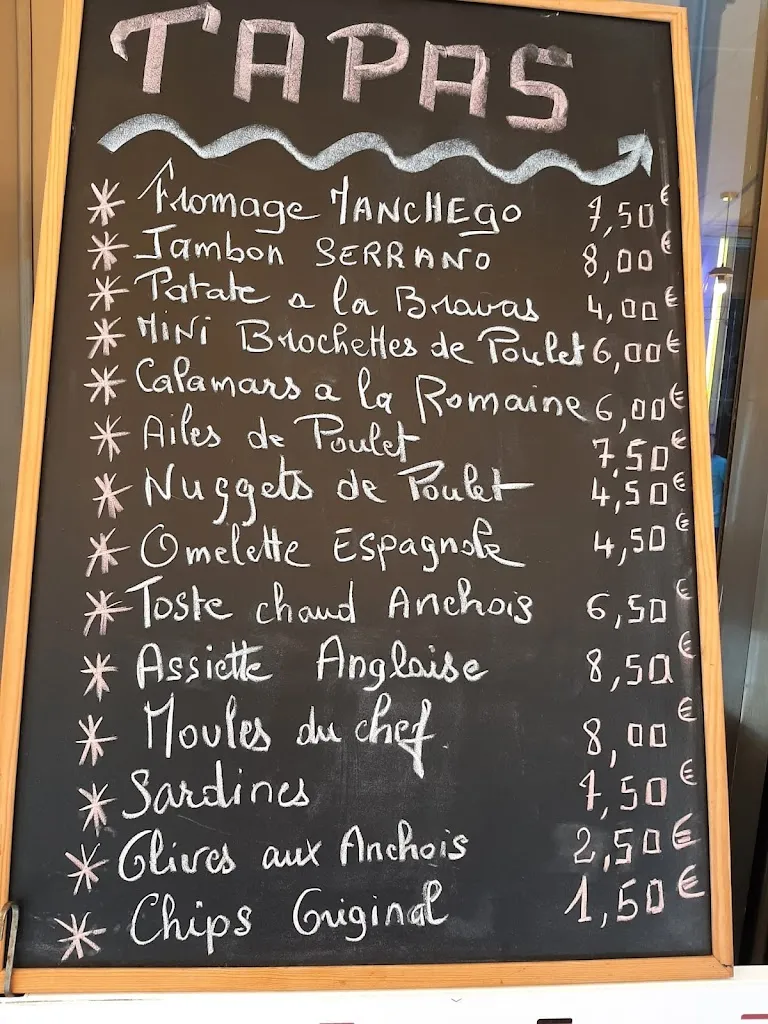 TAPAS
* Fromage MANCHEGO 7,50€
* Jambon SERRANO 8,00€
* Patate a la Bravas 4,00€
* MINI Brochettes de Poulet 6,00€
* Calamars a la Romaine 6,00€
* Ailes de Poulet 7,50€
* Nuggets de Poulet 4,50€
* Omelette Espagnole 4,50€
* Toste chaud Anchois 6,50€
* Assiette Anglaise 8,50€
* Moules du chef 8,00€
* Sardines 7,50€
* Olives aux Anchois 2,50€
* Chips Original 1,50€